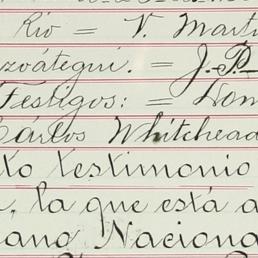 Rio = V. Marti
zoátegui. = J. P
Testigos: = Dom
Cárlos Whitehead
to testimonio
, la que está a
ano Naciona